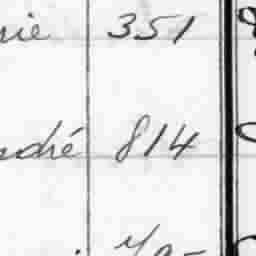 nie 351
ndré 814